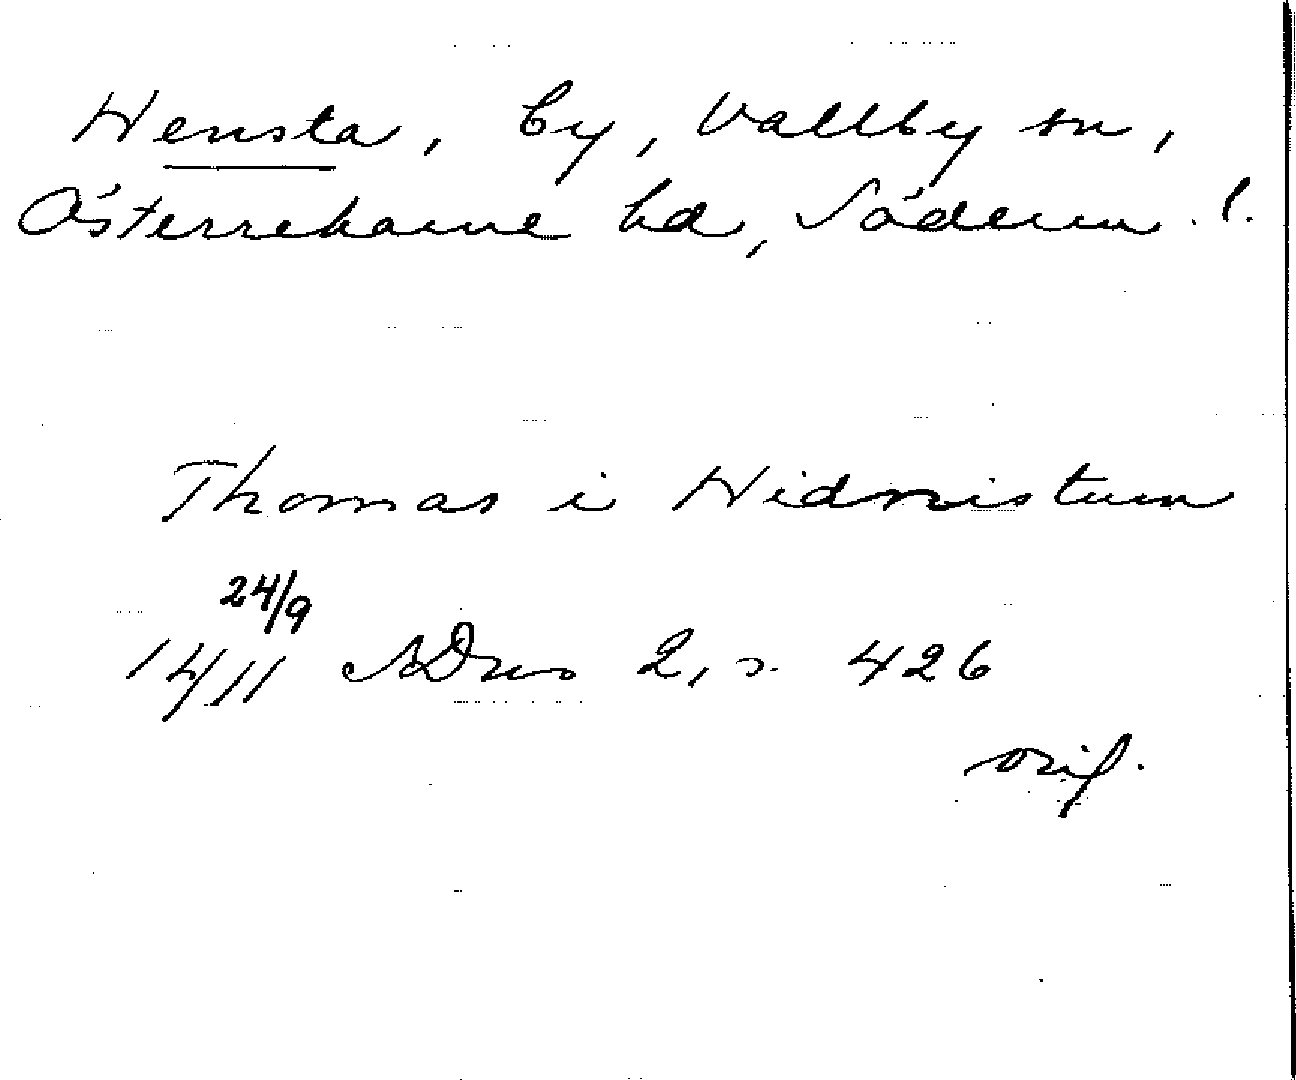 Hensta, by, Vallby sn,
Österrekarne hd, Söderm. l.
Thomas i Hidmistum
24/9
1411 SDns 2, s. 426
orig.